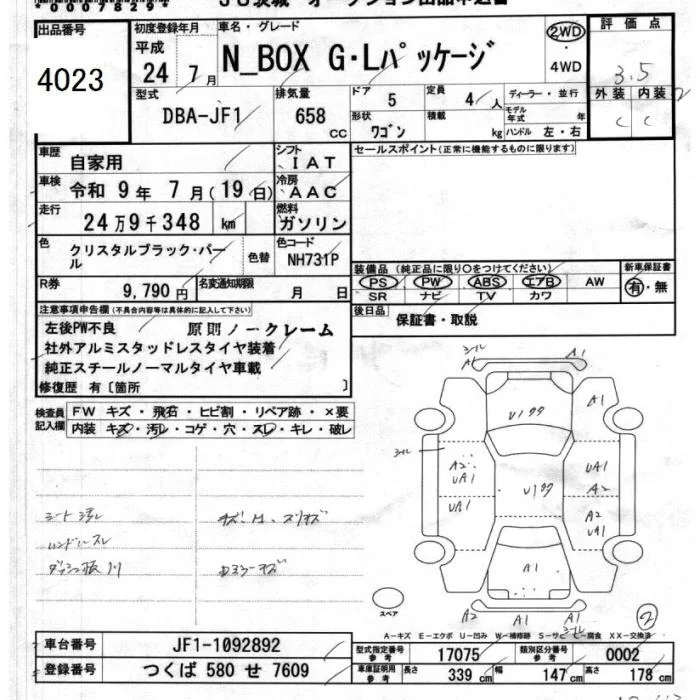 *00078296*
JU茨城 オークション出品申込書
出品番号 4023
初度登録年月 平成 24年 7月
車名・グレード N_BOX G・Lパッケージ
2WD・4WD
評価点 3.5
外装 C 内装 C
型式 DBA-JF1
排気量 658 CC
ドア 5 定員 4人
形状 ワゴン 積載 kg
ディーラー・並行
モデル年式 年
ハンドル 左・右
車歴 自家用
シフト IAT
セールスポイント(正常に機能するものに限ります)
車検 令和 9年 7月(19日)
冷房 AAC
走行 24万9千348 km
燃料 ガソリン
色 クリスタルブラック・パール 色替
色コード NH731P
R券 9,790円
名変通知期限 月 日
装備品(純正品に限り○をつけてください)
PS PW ABS エアB AW
SR ナビ TV カワ
新車保証書 有・無
後日品 保証書・取説
注意事項申告欄(不具合内容等は具体的に記入して下さい)
左後PW不良 原則ノークレーム
社外アルミスタッドレスタイヤ装着
純正スチールノーマルタイヤ車載
修復歴 有〔箇所 〕
検査員記入欄
FW キズ・飛石・ヒビ割・リペア跡・×要
内装 キズ・汚レ・コゲ・穴・スレ・キレ・破レ
シート汚レ
ハンドルスレ
A1 A1
A1
U1
A2 UA1 UA1
UA1 A2
A2 UA1
A1
A2 A1 A1
スペア
②
A-キズ E-エクボ U-凹み W-補修跡 S-サビ C-腐食 XX-交換済
車台番号 JF1-1092892
型式指定番号 参考 17075
類別区分番号 参考 0002
登録番号 つくば 580 せ 7609
車庫証明用 参考 長さ 339 cm 幅 147 cm 高さ 178 cm